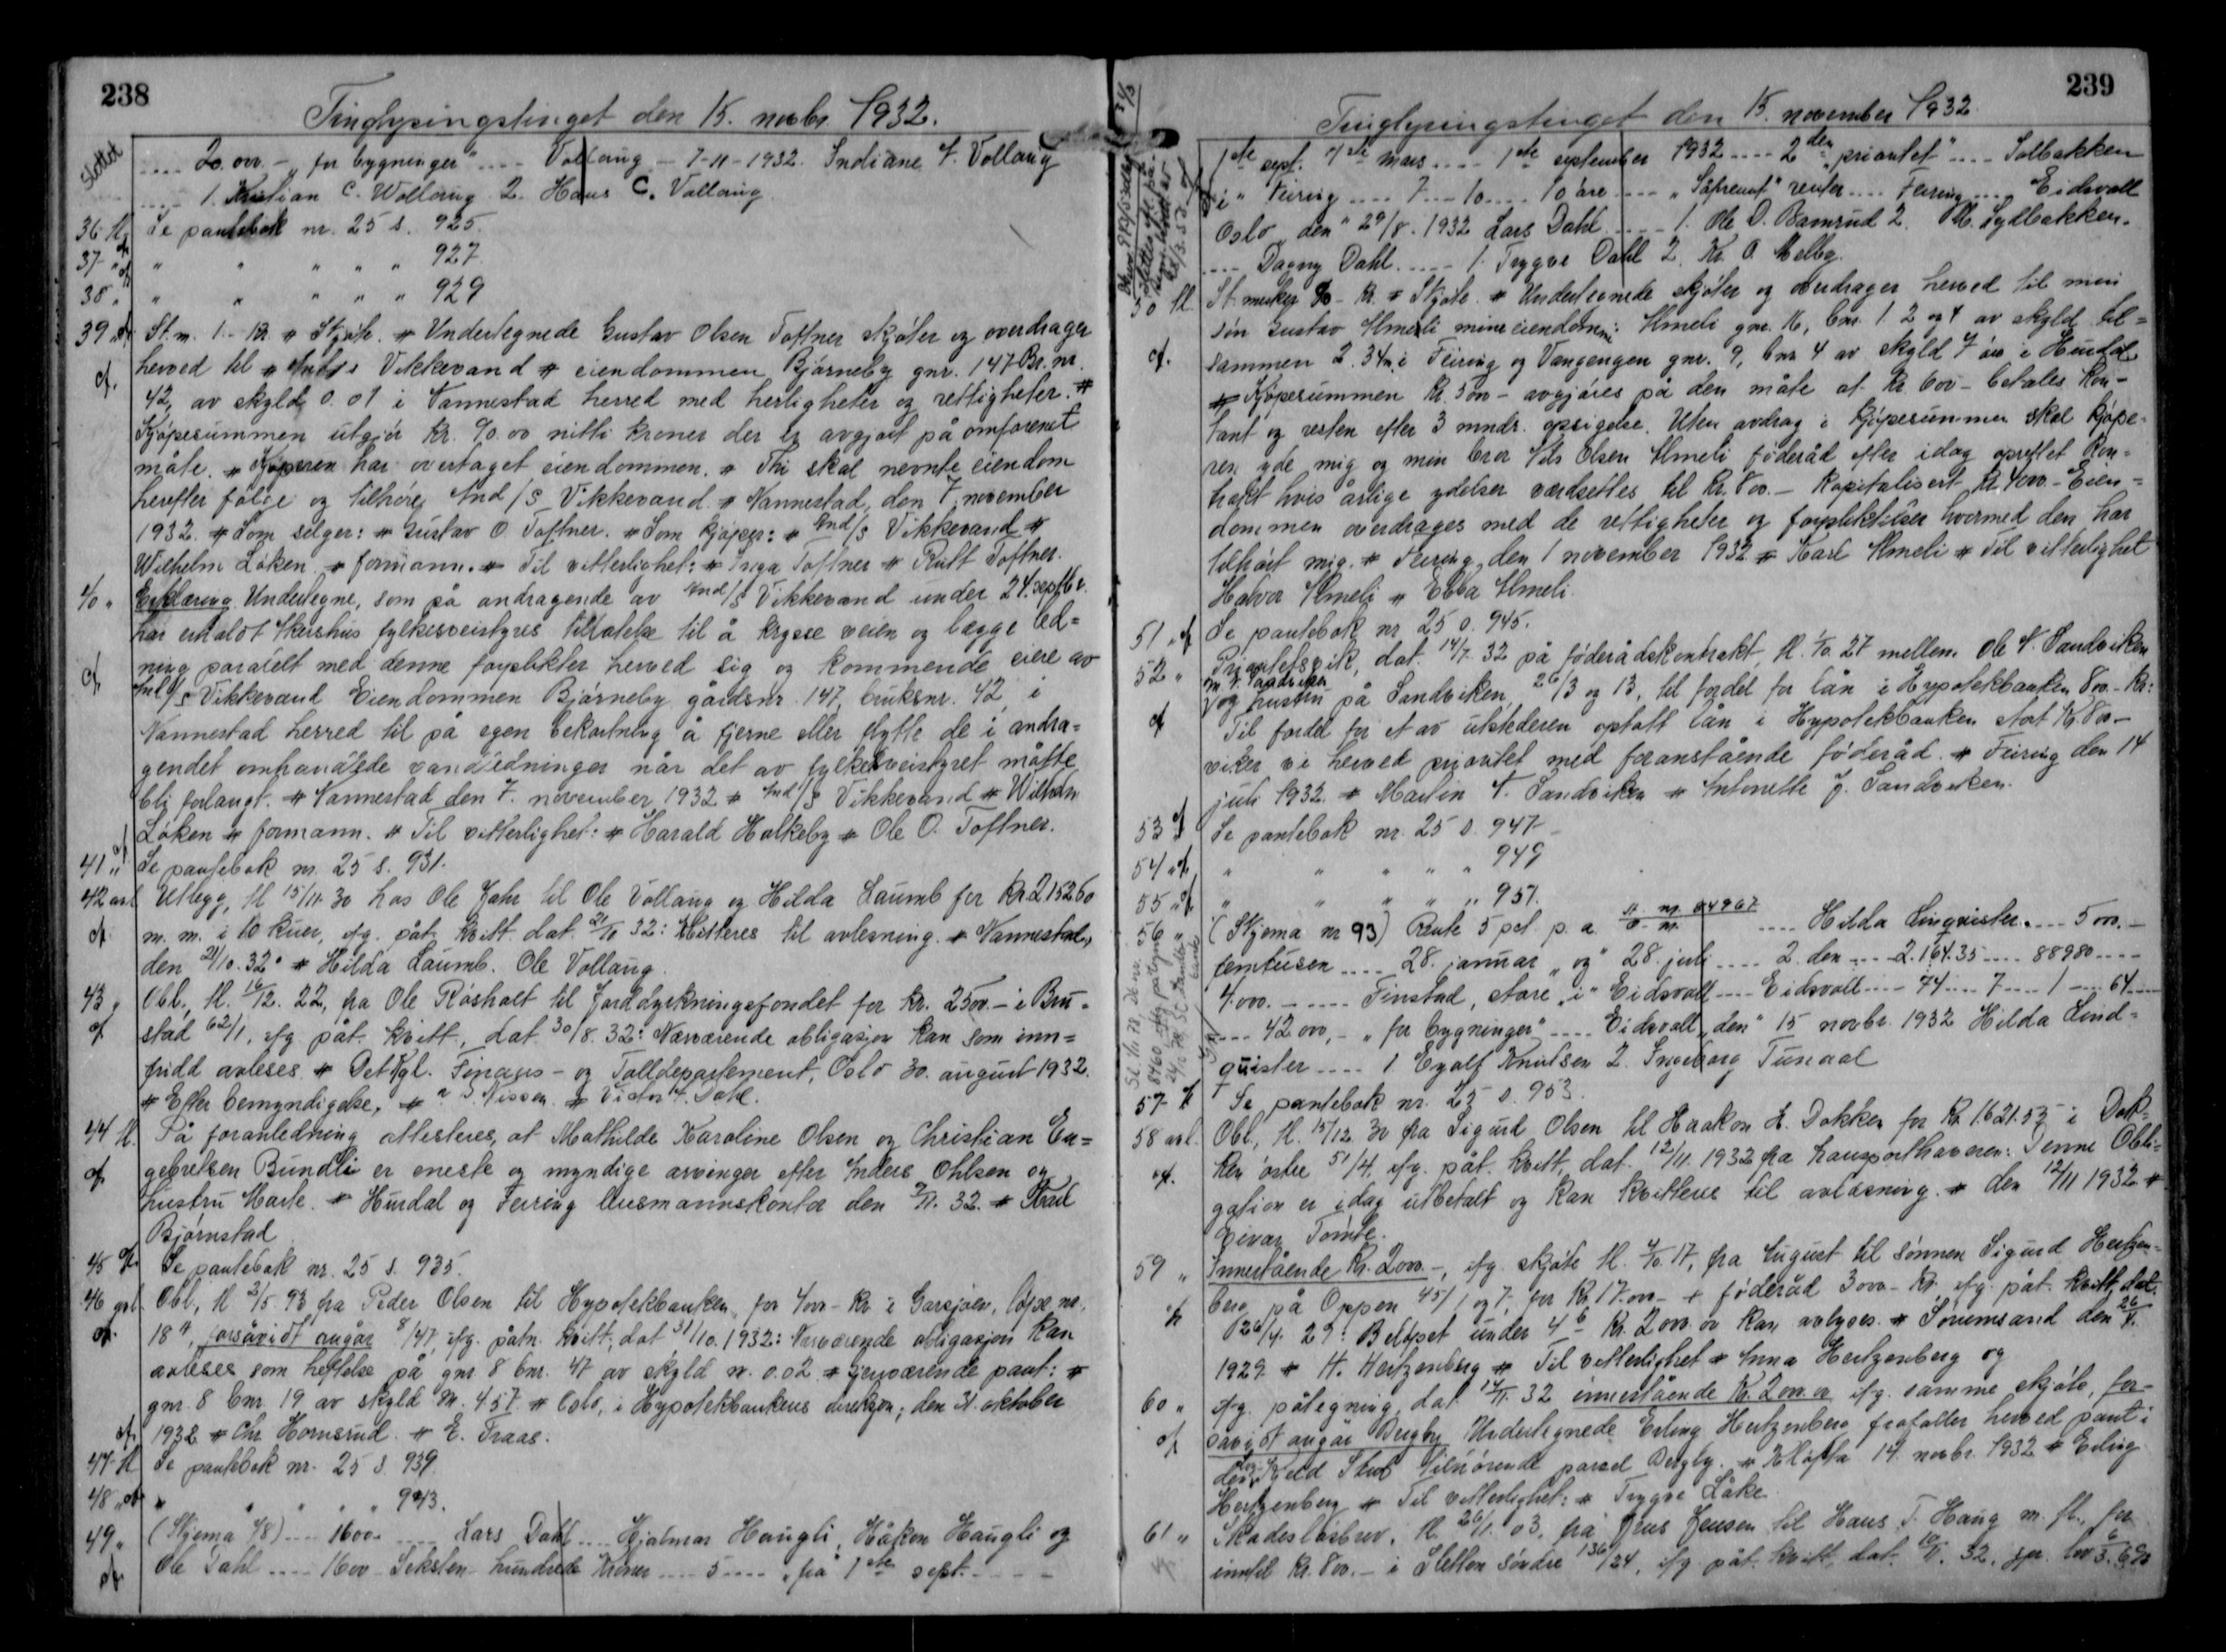 238
Tinglysingstinget den 15. novbr. 1932.
slettet
.... 20.000.- „for bygninger" .... Vollaug - 7-11-1932. Indiane T. Vollaug
.... 1. Kristian C. Wollaug 2. Hans C. Vollaug.
36 tl. Se pantebok nr. 25 s. 925.
37 " " " " " " 927
38 " " " " " " 929
39 " St. m. 1.- kr. # Skjøte. # Undertegnede Gustav Olsen Toftner skjøter og overdrager
herved til # And/s Vikkevand # eiendommen Bjørneby gnr. 147 Br. nr.
42, av skyld 0.01 i Nannestad herred med herligheter og rettigheter. #
Kjøpesummen utgjør kr. 90.00 nitti kroner der er avgjort på omforenet
måte. # Kjøperen har overtaget eiendommen. # Thi skal nevnte eiendom
herefter følge og tilhøre And/s Vikkevand. # Nannestad, den 7. november
1932. # Som selger: # Gustav O Toftner. # Som kjøper: # And/s Vikkevand #
Wilhelm Løken # formann. # Til vitterlighet: # Inga Toftner # Rutt Toftner.
40 " Erklæring. Undertegne, som på andragende av And/s Vikkevand under 24. septbr.
har erholdt Akershus fylkesveistyres tillatelse til å krysse veien og lægge led=
ning paralelt med denne forplikter herved sig og kommende eiere av
And/s Vikkevand Eiendommen Bjørneby gårdsnr. 147, bruksnr. 42, i
Nannestad herred til på egen bekostning å fjerne eller flytte de i andra=
gendet omhandlede vandledninger når det av fylkesveistyret måtte
bli forlangt. # Nannestad den 7. november 1932 # And/s Vikkevand # Wilhelm
Løken # formann. # Til vitterlighet: # Harald Holkeby # Ole O. Toftner.
41 " Se pantebok nr. 25 s. 931.
42 avl Utlegg, tl 15/11.30 hos Ole Jahr til Ole Vollaug og Hilda Laumb for kr. 2152.60
m. m. i 10 kuer, ifg. påt. kvitt. dat. 21/10 32: Kvitteres til avlesning. # Nannestad,
den 21/10.32. # Hilda Laumb. Ole Vollaug.
43 " Obl., tl. 16/12. 22, fra Ole Røsholt til Jorddyrkningsfondet for kr. 2500.- i Bru=
stad 62/1, ifg påt. kvitt, dat 30/8. 32: Nærværende obligasjon kan som inn=
fridd avleses # Det Kgl. Finans- og Tolldepartement, Oslo 30. august 1932.
# Efter bemyndigelse, # Nissen # Victor H. Dahl.
44 tl. På foranledning attesteres, at Mathilde Karoline Olsen og Christian En=
gebretsen Bundli er eneste og myndige arvinger efter Anders Ohlsen og
hustru Marte. # Hurdal og Feiring lensmannskontor den 9/11. 32. # Karl
Bjørnstad
45 Se pantebok nr. 25 s. 935.
46 avl Obl., tl 3/5 93 fra Peder Olsen til Hypotekbanken for 4000 - kr i Garsjøen, løpe nr.
18 a, forsåvidt angår 8/47, ifg. påtn. kvitt, dat 31/10. 1932: Nærværende obligasjon kan
avleses som heftelse på gnr 8 bnr. 47 av skyld m. 0.02 # Gjenværende pant: #
gnr. 8 bnr. 19 av skyld M. 4.57. # Oslo, i Hypotekbankens direksjon, den 31. oktober
1932 # Chr. Hornsrud. # E. Traas.
47 tl Se pantebok nr. 25 s. 939.
48 " " " " " " 943.
49 " (Skjema 48) .... 1600 .... Lars Dahl .... Hjalmar Haugli, Håkon Haugli og
Ole Dahl .... 1600 Seksten hundrede Kroner .... 5 .... „fra 1ste sept. ....
239
Tinglysingstinget den 15. november 1932
1ste sept. 1ste mars .... 1ste september 1932 .... 2den „prioritet" .... Solbakken
i „ Feiring .... 7 .... 10 .... 10 øre .... „Såfremt" renter .... Feiring .... Eidsvoll
Oslo den " 29/8. 1932 Lars Dahl .... 1. Ole O. Bamrud 2. M. Sydbakken.
.... Dagny Dahl .... 1. Trygve Dahl 2. Kr. O. Melby.
50 tl. St. merker 90 - kr. # Skjøte. # Undertegnede skjøter og overdrager herved til min
søn Gustav Almeli mine eiendomme: Almeli gnr. 16, bnr. 1. 2 og 4 av skyld til=
sammen 2.34 m. i Feiring og Vangengen gnr. 9, bnr 4 av skyld 7 øre i Hurdal.
# Kjøpesummen kr. 5000 - avgjøres på den måte at kr. 600 - betales kon=
tant og resten efter 3 mndr. opsigelse. Uten avdrag i kjøpesummen skal kjøpe-
ren yde mig og min bror Nils Olsen Almeli føderåd efter idag oprettet kon=
trakt hvis årlige ydelser værdsettes til kr. 800.- Kapitalisert kr. 4000 - Eien=
dommen overdrages med de rettigheter og forpliktelser hvormed den har
tilhørt mig. # Feiring, den 1 november 1932 # Karl Almeli # Til vitterlighet
Halvor Almeli # Ebba Almeli.
51 " Se pantebok nr 25 s. 945.
52 " Prioritetsvik, dat. 14/7. 32 på føderådskontrakt, tl. 1/10. 27 mellem Ole N. Sandviken
og hustru på Sandviken, 26/3 og 13, til fordel for lån i Hypotekbanken 800 - kr:
Til fordel for et av utstederen optatt lån i Hypotekbanken stort kr. 800 -
viker vi herved prioritet med foranstående føderåd. # Feiring den 14
juli 1932. # Martin N. Sandviken # Antonette J. Sandviken.
53 Se pantebok nr. 25 s. 947 -
54 " " " " " " 949
55 " " " " " " 951.
56 " (Skjema nr 93) Rente 5 pct. p. a. .... Hilda Linqvister. .... 5000.-
femtusen .... 28. januar „og" 28. juli .... 2. den .... 2.164.35 .... 88980 ....
4000. - .... Finstad, store „i" Eidsvoll .... Eidsvoll .... 74 .... 7 .... 1 .... 64 ....
.... 42.000,- „for bygninger" .... Eidsvoll „den" 15 novbr. 1932 Hilda Lind=
quister .... 1 Eyolf Knutsen 2. Ingeborg Tunaal
57 Se pantebok nr. 25 s. 953.
58 avl. Obl., tl. 15/12. 30 fra Sigurd Olsen til Haakon H. Dokken for kr. 1621.53 i Dok=
ken østre 51/4, ifg. påt. kvitt, dat. 12/11. 1932 fra transporthaveren: Denne Obli=
gation er idag utbetalt og kan kvitteres til avlæsning. # den 12/11 1932 #
Eivar Tømte.
59 " Innestående kr. 2000.-, ifg. skjøte tl. 4/10. 17, fra August til sønnen Sigurd Hertzen=
berg på Oppen 45/1 og 7, for kr. 17.000 - + føderåd 3000 - kr., ifg. påt. kvitt, dat.
26/4. 29: Beløpet under 4 b kr. 2000.00 kan avlyses. # Sørumsand den 26/4.
1929 # H. Hertzenberg # Til vitterlighet # Anna Hertzenberg og
60 " ifg. påtegning, dat 14/11. 32 innestående kr. 2000.00 ifg. samme skjøte, for-
såvidt angår Bergby Undertegnede Erling Hertzenberg frafalder herved pant i
den Kield Stub tilhørende parsel Bergby. # Kløfta 14. novbr. 1932 # Erling
Hertzenberg # Til vitterlighet: # Trygve Låke
61 " Skadesløsbrev, tl. 26/1. 03, fra Jens Jensen til Hans T. Haug m. fl., for
inntil kr. 800.- i Sletten søndre 136/24, ifg. påt. kvitt, dat. 10/11. 32, jfr. lov